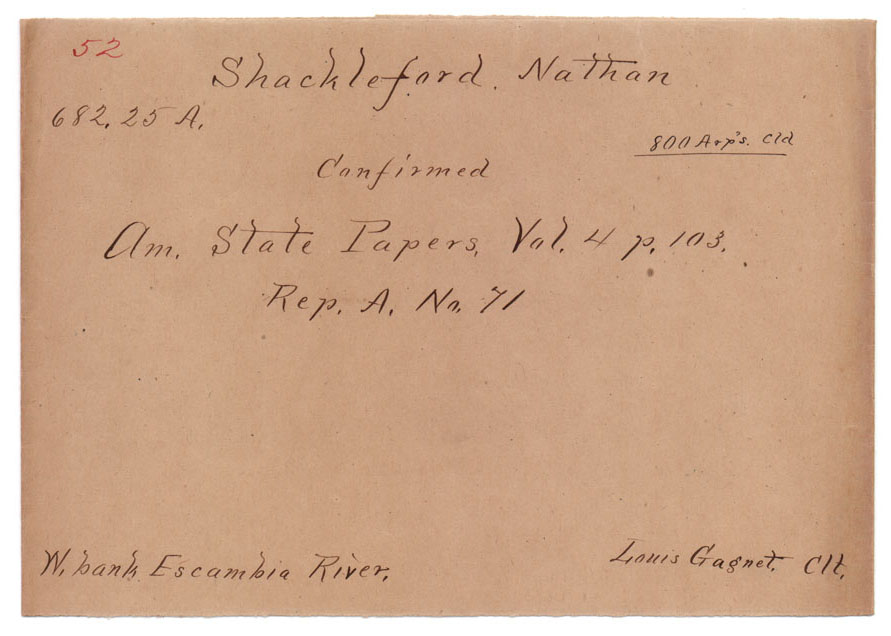 52
Shackleford. Nathan
682.25 A.
800 Arp's. Cld
Confirmed
Am. State Papers, Vol. 4 p. 103.
Rep. A. No. 71
W. bank Escambia River.
Louis Gagnet. Clt.